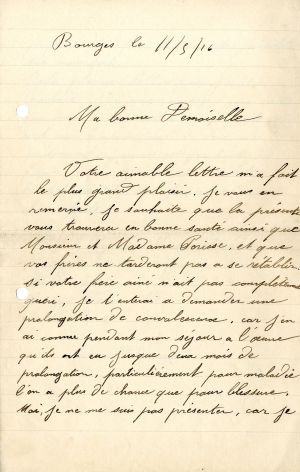 Bourges le 11/5/16
Ma bonne Demoiselle
Votre aimable lettre m'a fait
le plus grand plaisir. Je vous en
remercie, je souhaite que la présente
vous trouvera en bonne santé ainsi que
Monsieur et Madame et que
vos frères ne tarderont pas a se rétablir.
si votre frère ainé n'ait pas complètement
guéri, je l' a demander une
prolongation de convalescence, car j'en
ai connu pendant mon séjour a l'
qu'ils ont eu jusque deux mois de
prolongation, particulièrement pour maladie
l'on a plus de chance que pour blessure.
Moi, je ne me suis pas présenter, car je